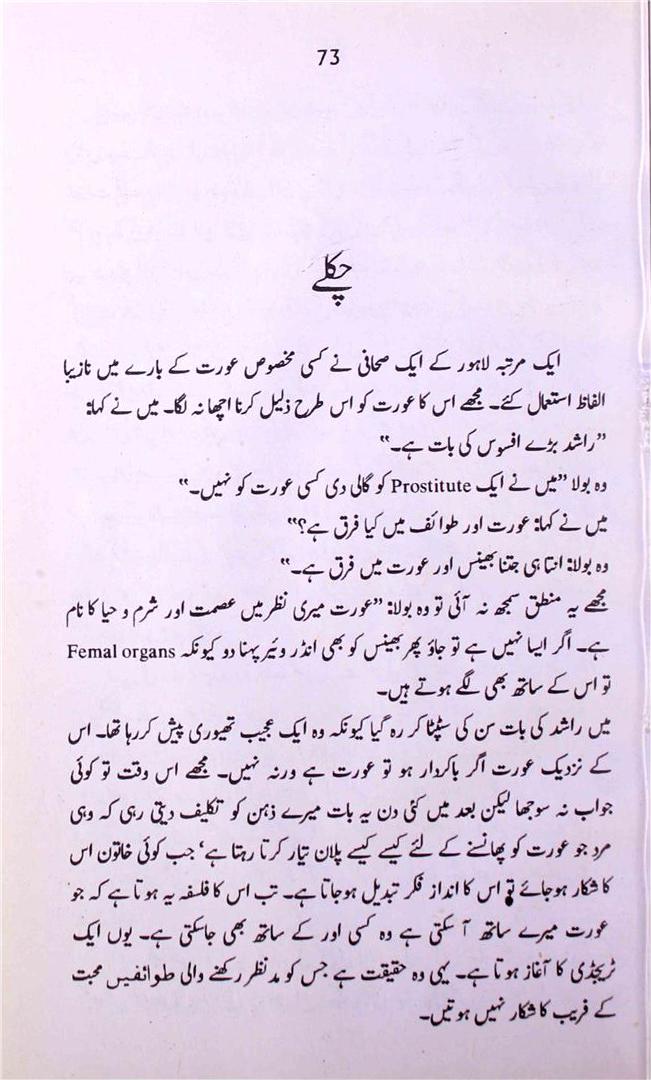 73
چکلے
ایک مرتبہ لاہور کے ایک صحافی نے کسی مخصوص عورت کے بارے میں نازیبا
الفاظ استعمال کئے۔ مجھے اس کا عورت کو اس طرح ذلیل کرنا اچھا نہ لگا۔ میں نے کہا:
”راشد بڑے افسوس کی بات ہے۔“
وہ بولا ”میں نے ایک Prostitute کو گالی دی کسی عورت کو نہیں۔“
میں نے کہا: عورت اور طوائف میں کیا فرق ہے؟“
وہ بولا: اتنا ہی جتنا بھینس اور عورت میں فرق ہے۔“
مجھے یہ منطق سمجھ نہ آئی تو وہ بولا: ”عورت میری نظر میں عصمت اور شرم و حیا کا نام
ہے۔ اگر ایسا نہیں ہے تو جاؤ پھر بھینس کو بھی انڈر ویئر پہنا دو کیونکہ Femal organs
تو اس کے ساتھ بھی لگے ہوتے ہیں۔
میں راشد کی بات سن کی سٹپٹا کر رہ گیا کیونکہ وہ ایک عجیب تھیوری پیش کر رہا تھا۔ اس
کے نزدیک عورت اگر باکردار ہو تو عورت ہے ورنہ نہیں۔ مجھے اس وقت تو کوئی
جواب نہ سوجھا لیکن بعد میں کئی دن یہ بات میرے ذہن کو تکلیف دیتی رہی کہ وہی
مرد جو عورت کو پھانسنے کے لئے کیسے کیسے پلان تیار کرتا رہتا ہے‘ جب کوئی خاتون اس
کا شکار ہوجائے تو اس کا انداز فکر تبدیل ہوجاتا ہے۔ تب اس کا فلسفہ یہ ہوتا ہے کہ جو
عورت میرے ساتھ آ سکتی ہے وہ کسی اور کے ساتھ بھی جاسکتی ہے۔ یوں ایک
ٹریجڈی کا آغاز ہوتا ہے۔ یہی وہ حقیقت ہے جس کو مدنظر رکھنے والی طوائفیں محبت
کے فریب کا شکار نہیں ہوتیں۔